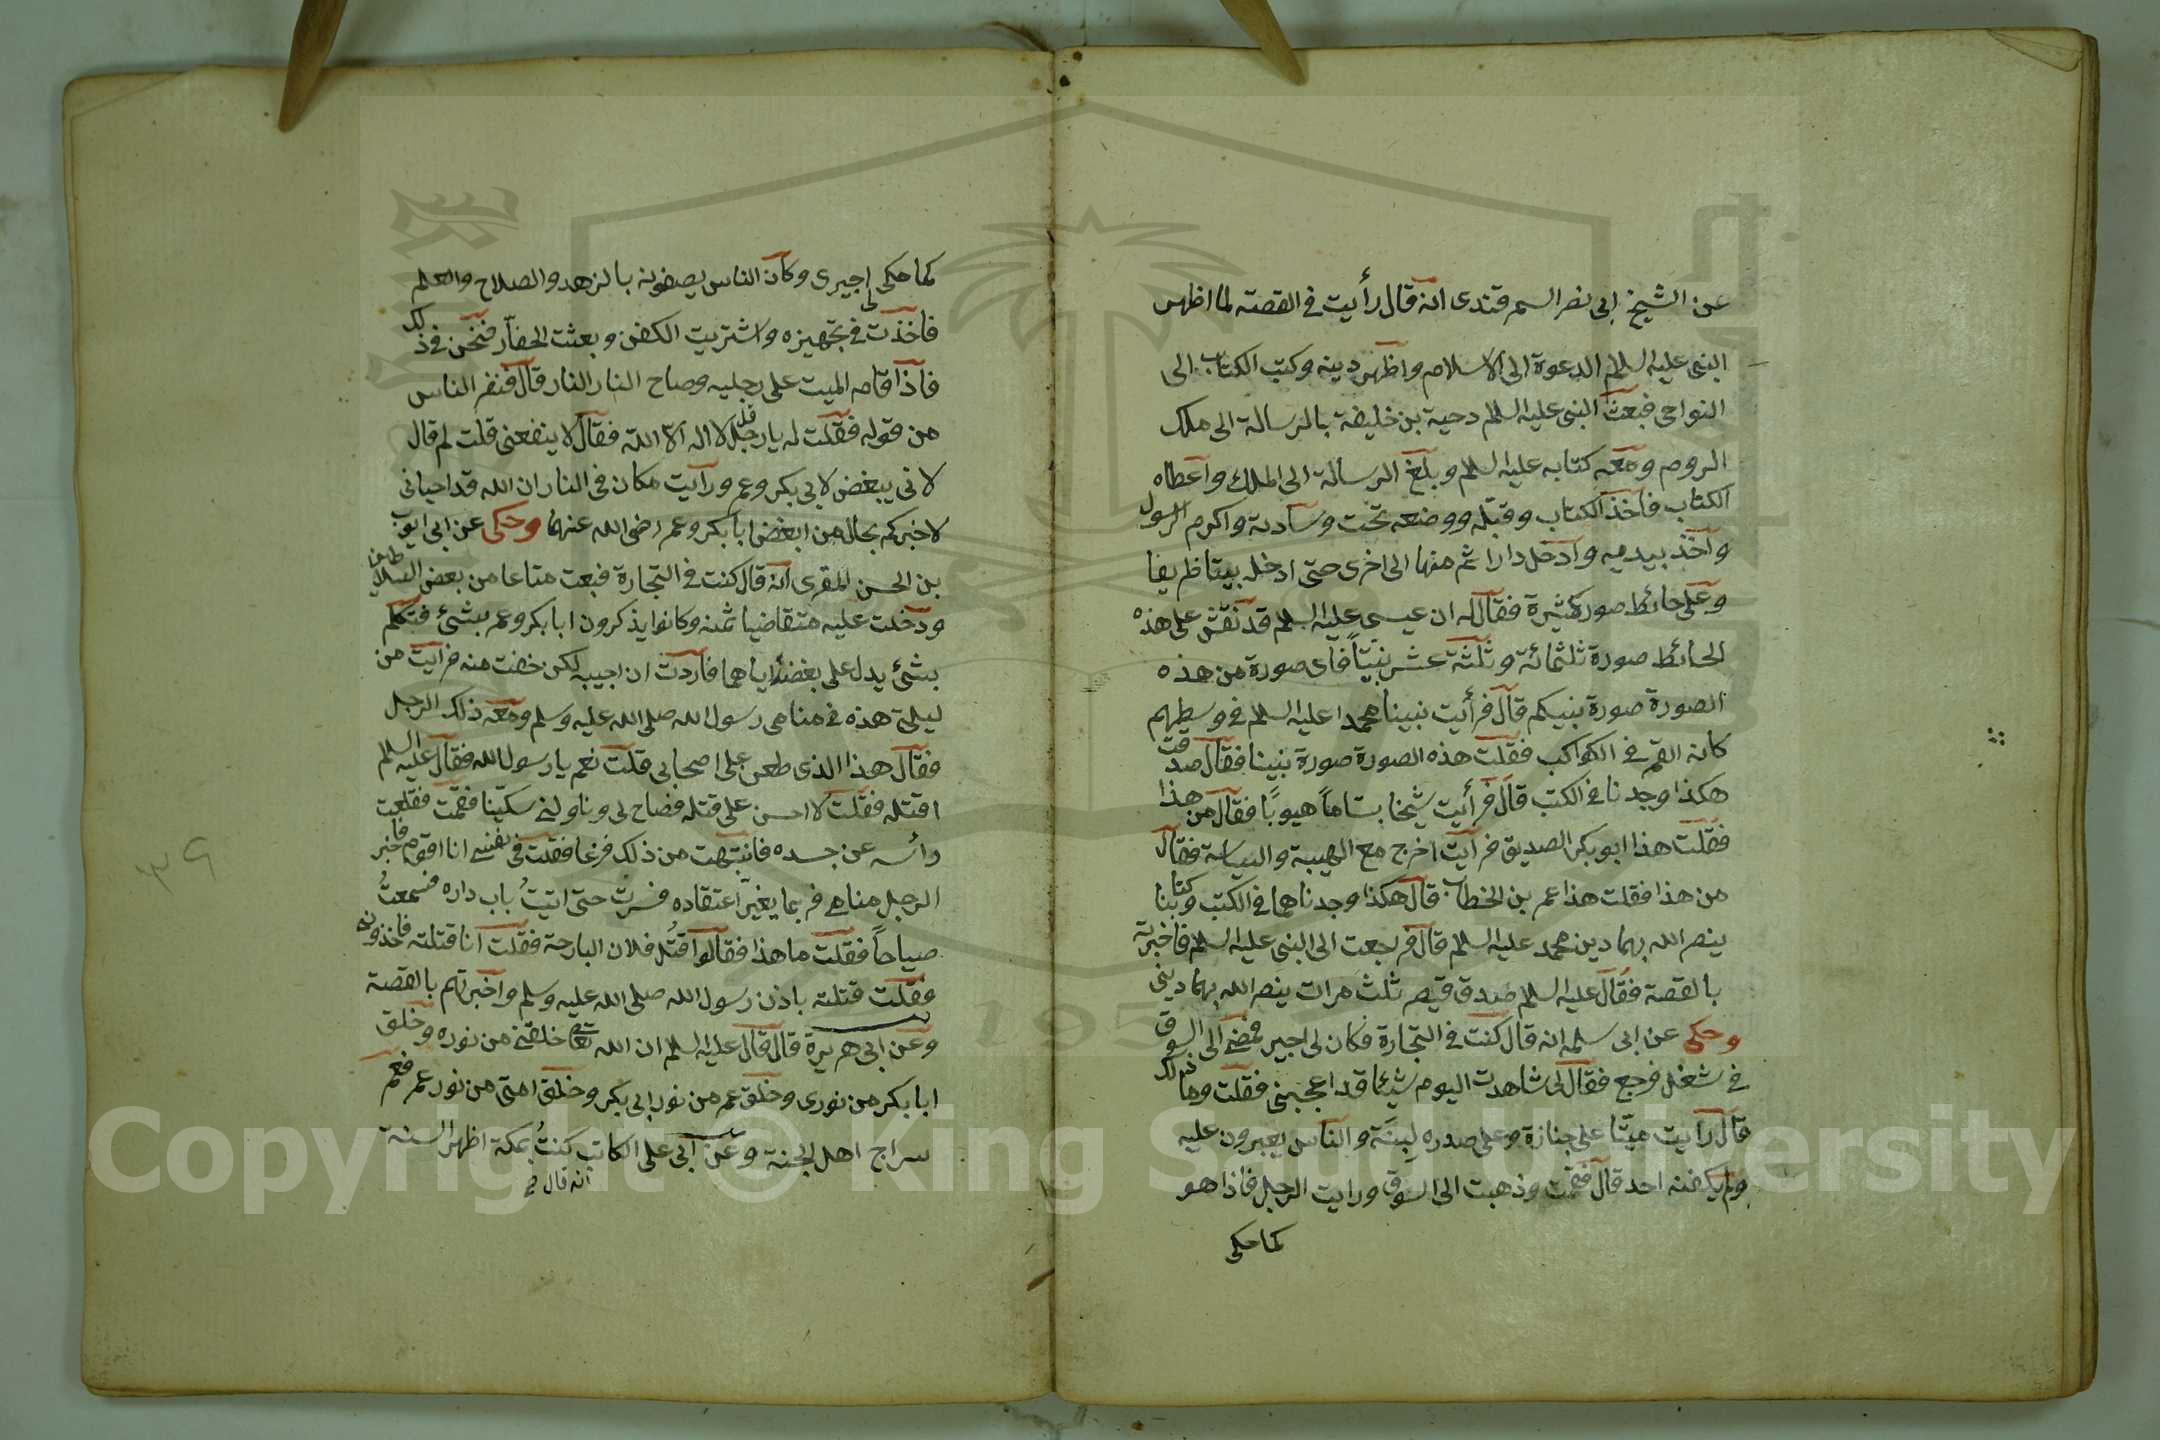 عن الشيخ ابى نصر السمرقندى انه قال رأيت فى القصة لما اظهر
النبى عليه السلام الدعوة الى الاسلام واظهر دينه وكتب الكتاب الى
النواحى فبعث النبى عليه السلم دحية بن خليفة بالرسالة الى ملك
الروم ومعه كتابه عليه السلم وبلغ الرسالة الى الملك واعطاه
الكتاب فاخذ الكتاب وقبله ووضعه تحت وسادته واكرم الرسول
واخذ بيديه وادخل دارا ثم منها الى اخرى حتى ادخله بيتا
وعلى حائط صورة كثيرة فقال له ان عيسى عليه السلم قد نقش على هذه
الحائط صورة ثلثمائة وثلثة عشر نبيًا فاى صورة من هذه
الصورة صورة نبيكم قال فرأيت نبينا محمدا عليه السلم فى وسطهم
كانه القمر فى الكواكب فقلت هذه الصورة صورة نبينا فقال صدقت
هكذا وجدنا فى الكتب قال فرأيت شيخا بساماً هيوبًا فقال من هذا
فقلت هذا ابو بكر الصديق فرأيت اخرج مع الهيبة والسياسة فقال
من هذا فقلت هذا عمر بن الخطاب قال هكذا وجدناهما فى الكتب وكتابنا
ينصر الله بهما دين محمد عليه السلم قال فرجعت الى النبى عليه السلم فاخبرته
بالقصة فقال عليه السلم صدق قيصر ثلث مرات ينصر الله بهما دينى
وحكى عن ابى سلمه انه قال كنت فى التجارة فكان لى اجير فمضى الى السوق
فى شغل فرجع فقال لى شاهدت اليوم شيئا قد اعجبنى فقلت وما ذلك
قال رايت ميتا على جنازة وعلى صدره لبنة والناس يعبرون عليه
ولم يكفنه احد قال فقمت وذهبت الى السوق ورايت الرجل فاذا هو
كما حكى
كما حكى اجيرى وكان الناس يصفونه بالزهد والصلاح والعلم
فاخذت فى تجهيزه واشتريت الكفن وبعثت الى الحفار فنحن فى ذلك
فاذا قام الميت على رجليه وصاح النار النار قال فنفر الناس
من قوله فقلت له يا رجل قل لا اله الا الله فقال لا ينفعنى قلت لم قال
لانى يبغض لابى بكر وعمر ورايت مكان فى النار ان الله قد احيانى
لاخبركم بحال من ابغض ابا بكر وعمر رضى الله عنهما وحكى عن ابى ايوب
بن الحسن المقرى انه قال كنت فى التجارة فبعت متاعا من بعض السلاطين
ودخلت عليه متقاضيا ثمنه وكانوا يذكرون ابا بكر وعمر بشئ فتكلم
بشئ يدل على بغضه اياهما فاردت ان اجيبه لكن خفت منه فرايت من
ليلتى هذه فى منامى رسول الله صلى الله عليه وسلم ومعه ذلك الرجل
فقال هذا الذى طعن على اصحابى قلت نعم يا رسول الله فقال عليه السلم
اقتله فقلت لا احسن على قتله فصاح لى وناولنى سكينا فقمت فقلعت
رأسه عن جسده فانتبهت من ذلك فزعا فقلت فى نفسى انا اقوم فاخبر
الرجل منامى فربما يغير اعتقاده فسرت حتى اتيتُ باب داره فسمعتُ
صياحاً فقلت ما هذا فقالوا قُتل فلان البارحة فقلت انا قتلته فاخذونى
وفقلت قتلته باذن رسول الله صلى الله عليه وسلم واخبرتهم بالقصة
وعن ابى هريرة قال قال عليه السلم ان الله تعالى خلقنى من نوره وخلق
ابا بكر من نورى وخلق عمر من نور ابى بكر وخلق امتى من نور عمر فعمر
سراج اهل الجنة وعن ابى على الكاتب كنتُ بمكة اظهر السنة
انه قال صح
٣٩
Copyright © King Saud University
195